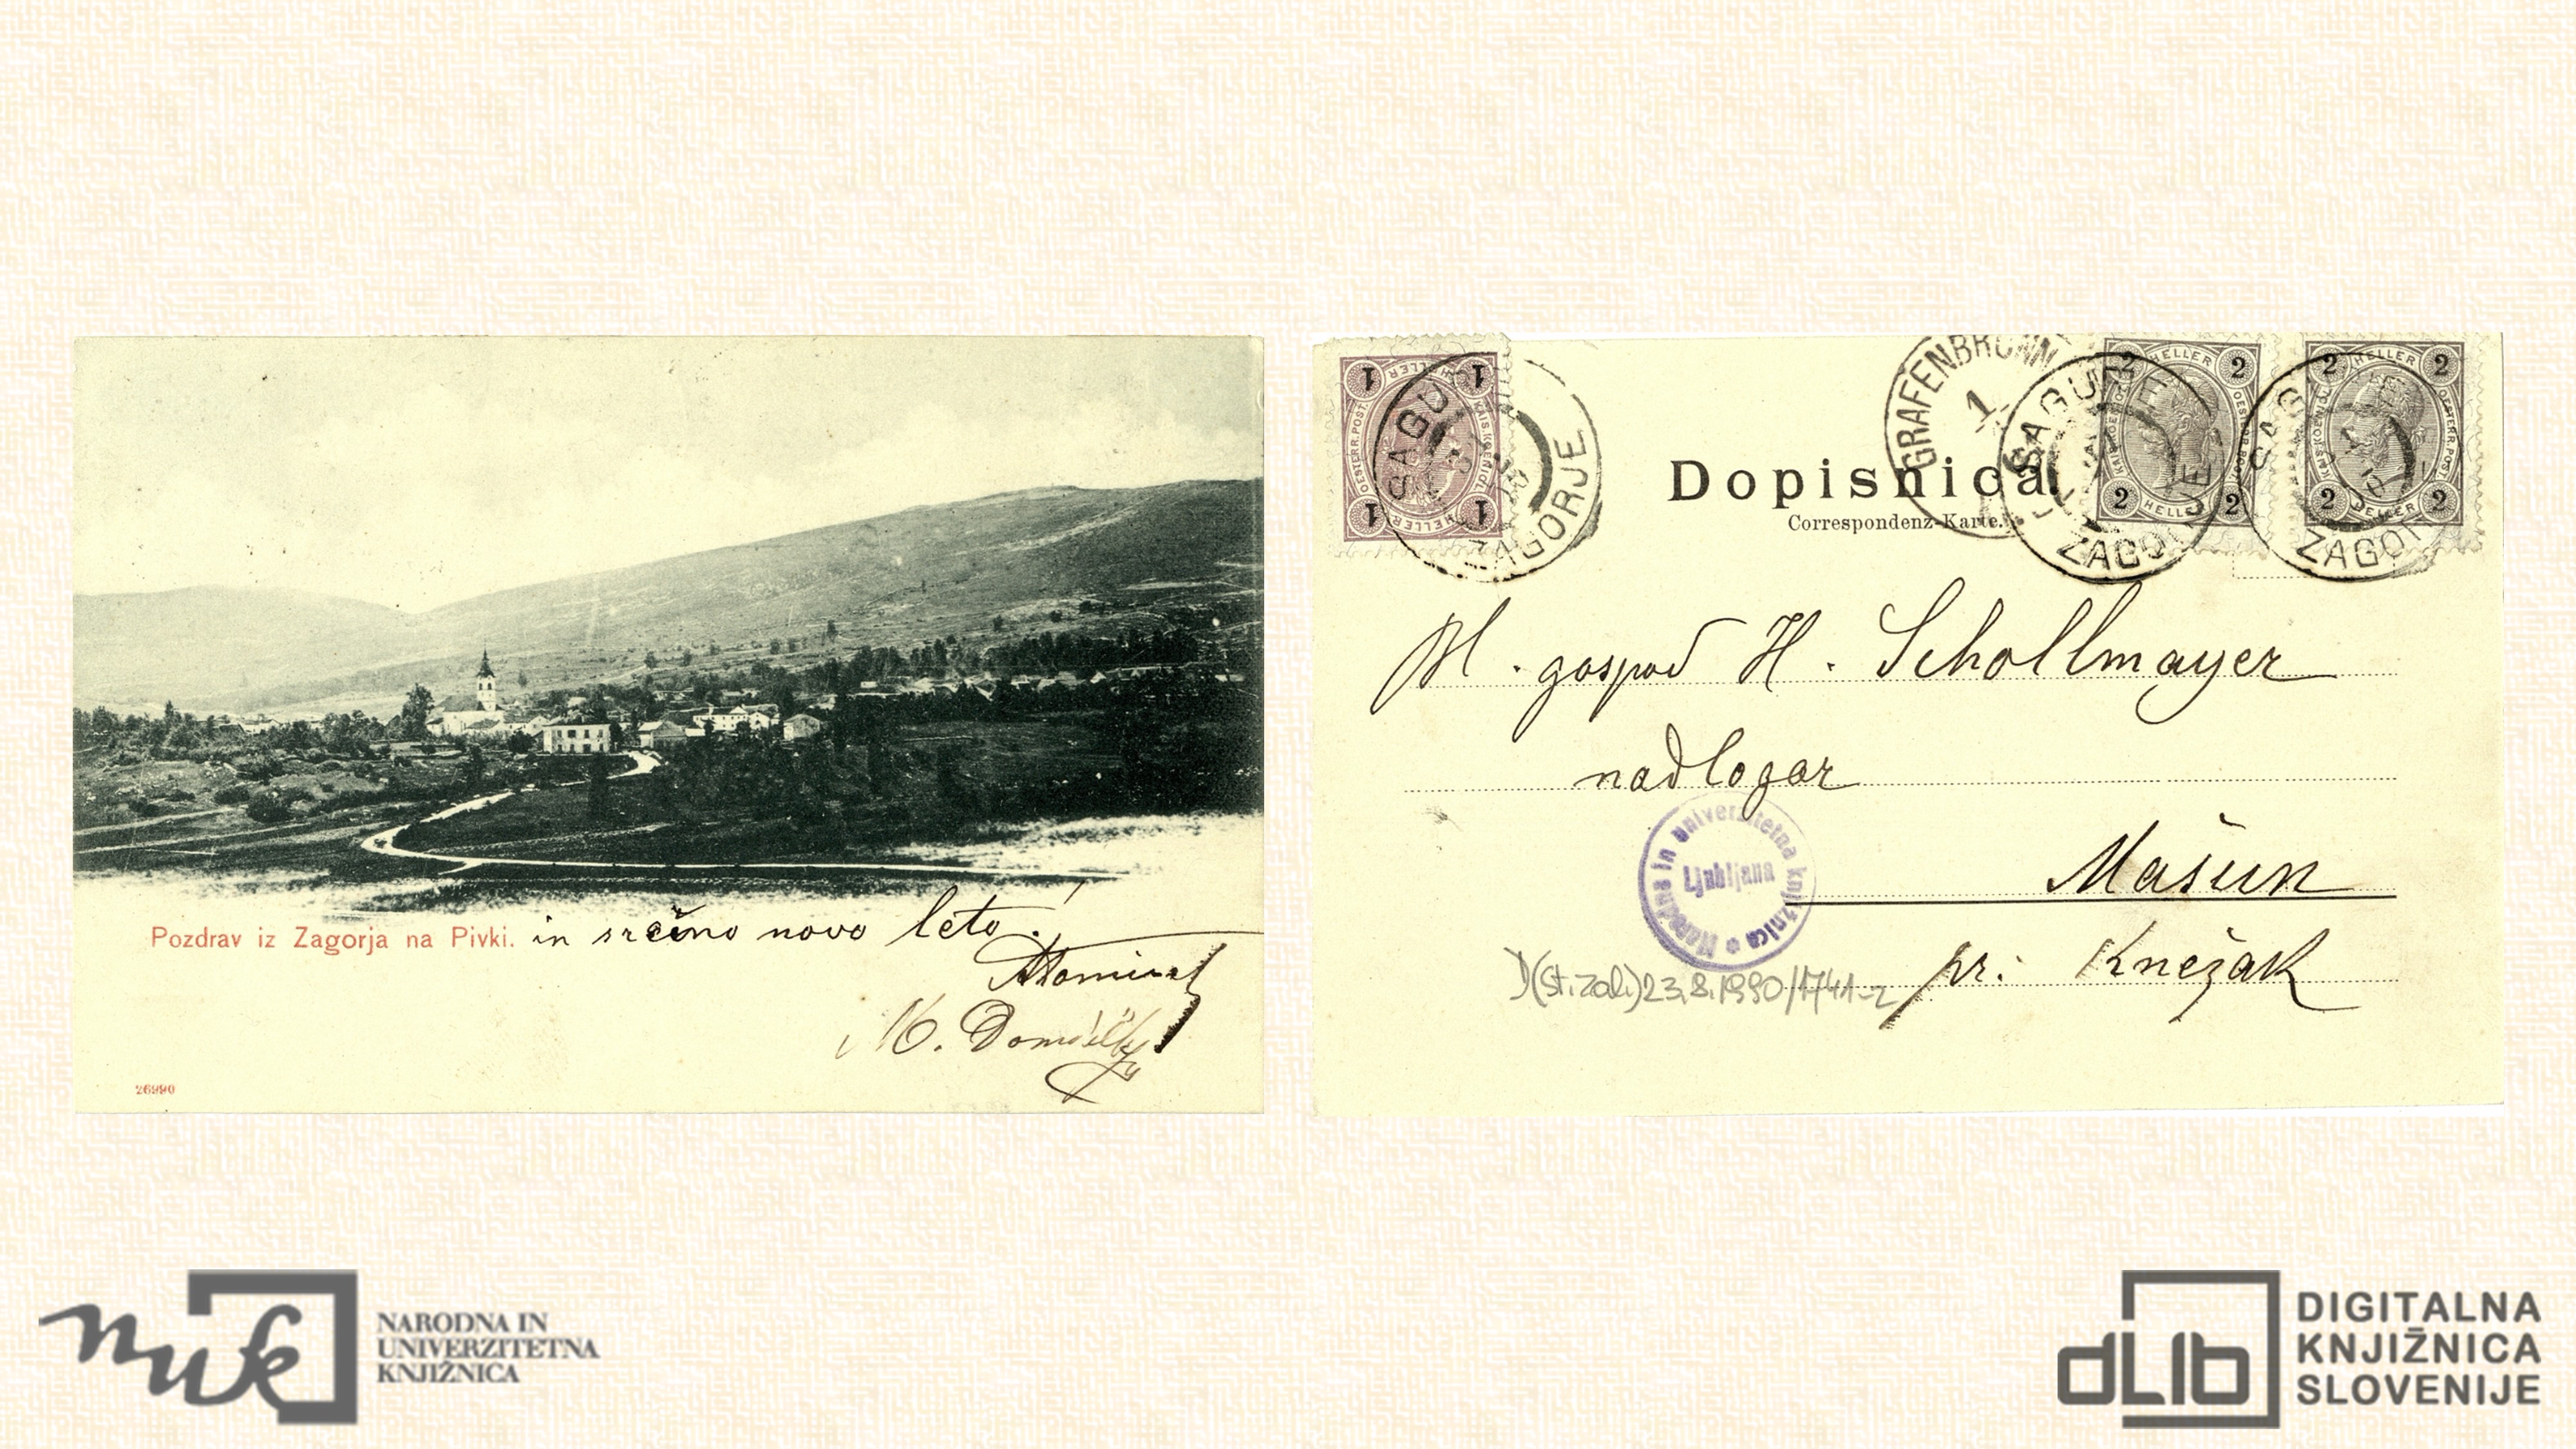 Pozdrav iz Zagorja na Pivki. in srčno novo leto!
M.
26990
1 HELLER 1
KAIS. KOENIGL. OESTERR. POST.
1 1
SAGURIE
ZAGORJE
GRAFENBRUNN
1.
SAGURIE
ZAGORJE
2 HELLER 2
KAIS. KOENIGL. OESTERR. POST.
2 HELLER 2
ZAGORJE
2 HELLER 2
KAIS. KOENIGL. OESTERR. POST.
2 HELLER 2
Dopisnica.
Correspondenz-Karte.
Bl. gospod H. Schollmayer
nadlogar
Narodna in univerzitetna knjižnica
Ljubljana
Mašun
pr. Knežak
D(st. zal.) 23.8.1990/1741-2
nuk
NARODNA IN
UNIVERZITETNA
KNJIŽNICA
dLib
DIGITALNA
KNJIŽNICA
SLOVENIJE